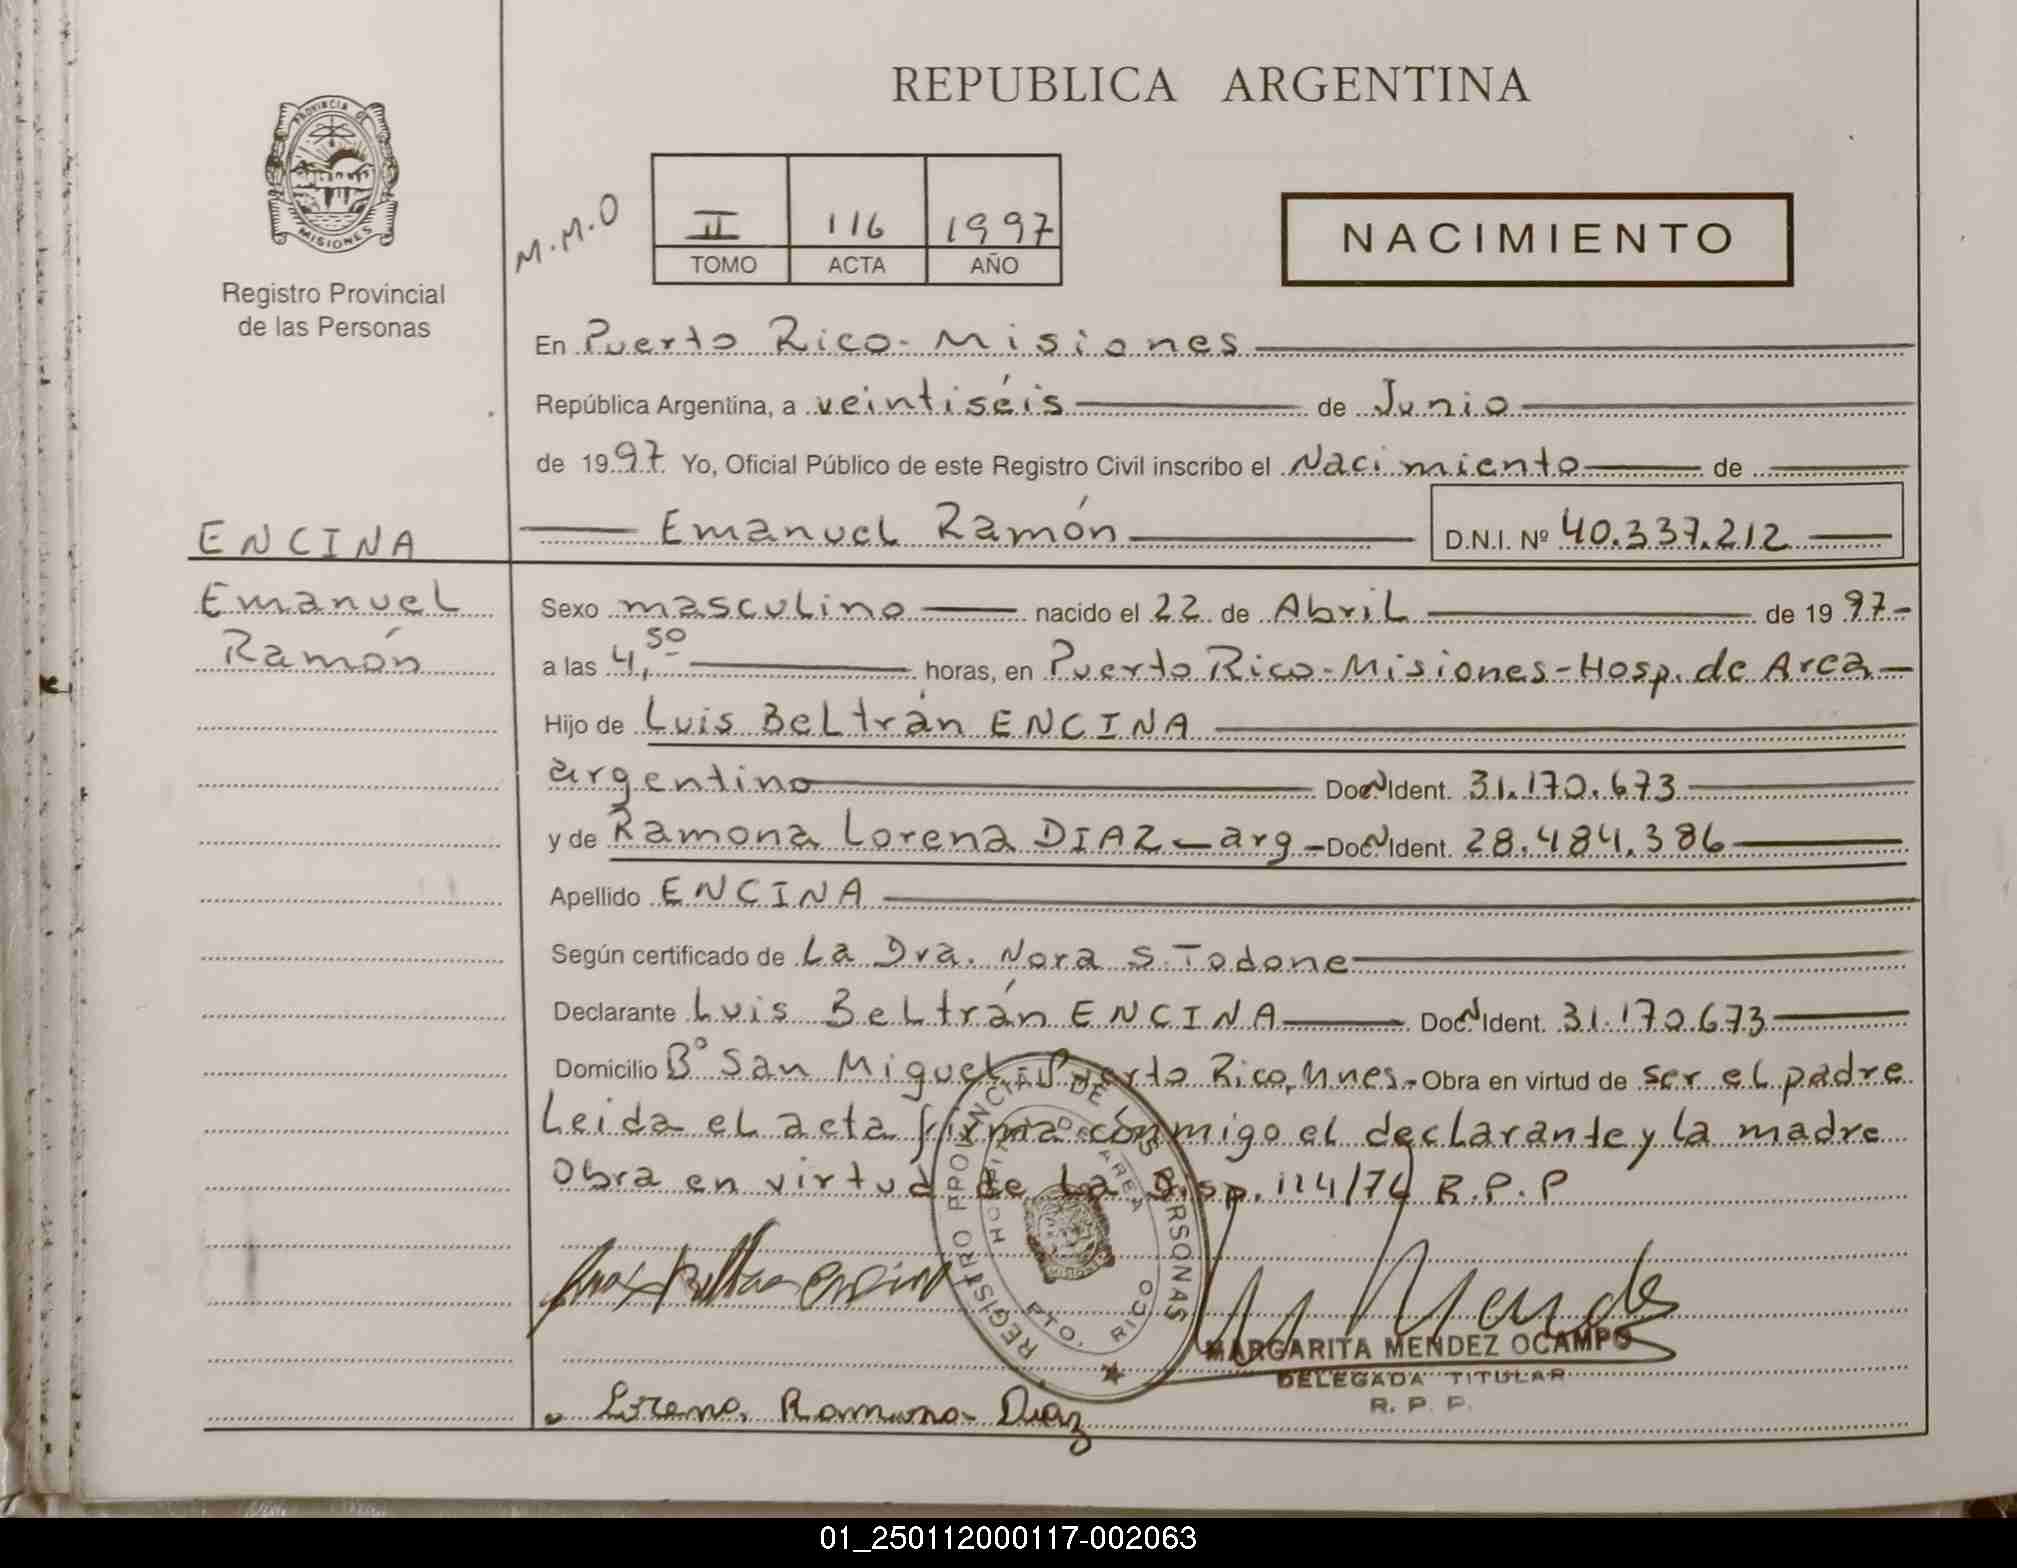 REPUBLICA ARGENTINA
PROVINCIA DE
MISIONES
Registro Provincial
de las Personas
M.M.O
II 116 1997
TOMO ACTA AÑO
NACIMIENTO
En Puerto Rico - Misiones
República Argentina, a veintiséis de Junio
de 1997 Yo, Oficial Público de este Registro Civil inscribo el Nacimiento de
Emanuel Ramón D.N.I. Nº 40.337.212
ENCINA
Emanuel
Ramón
Sexo masculino nacido el 22 de Abril de 1997-
a las 4,50 horas, en Puerto Rico - Misiones - Hosp. de Area -
Hijo de Luis Beltrán ENCINA
argentino Doc N Ident. 31.170.673
y de Ramona Lorena DIAZ - arg - Doc N Ident. 28.484.386
Apellido ENCINA
Según certificado de La Dra. Nora S. Todone
Declarante Luis Beltrán ENCINA Doc N Ident. 31.170.673
Domicilio Bº San Miguel - Puerto Rico, Mnes. - Obra en virtud de ser el padre
Leida el acta firma conmigo el declarante y la madre
Obra en virtud de La Disp. 114/76 R.P.P
REGISTRO PROVINCIAL DE LAS PERSONAS
HOSPITAL DE AREA
PTO. RICO
MARGARITA MENDEZ OCAMPO
DELEGADA TITULAR
R. P. P.
Lorena Ramona Diaz
01_250112000117-002063